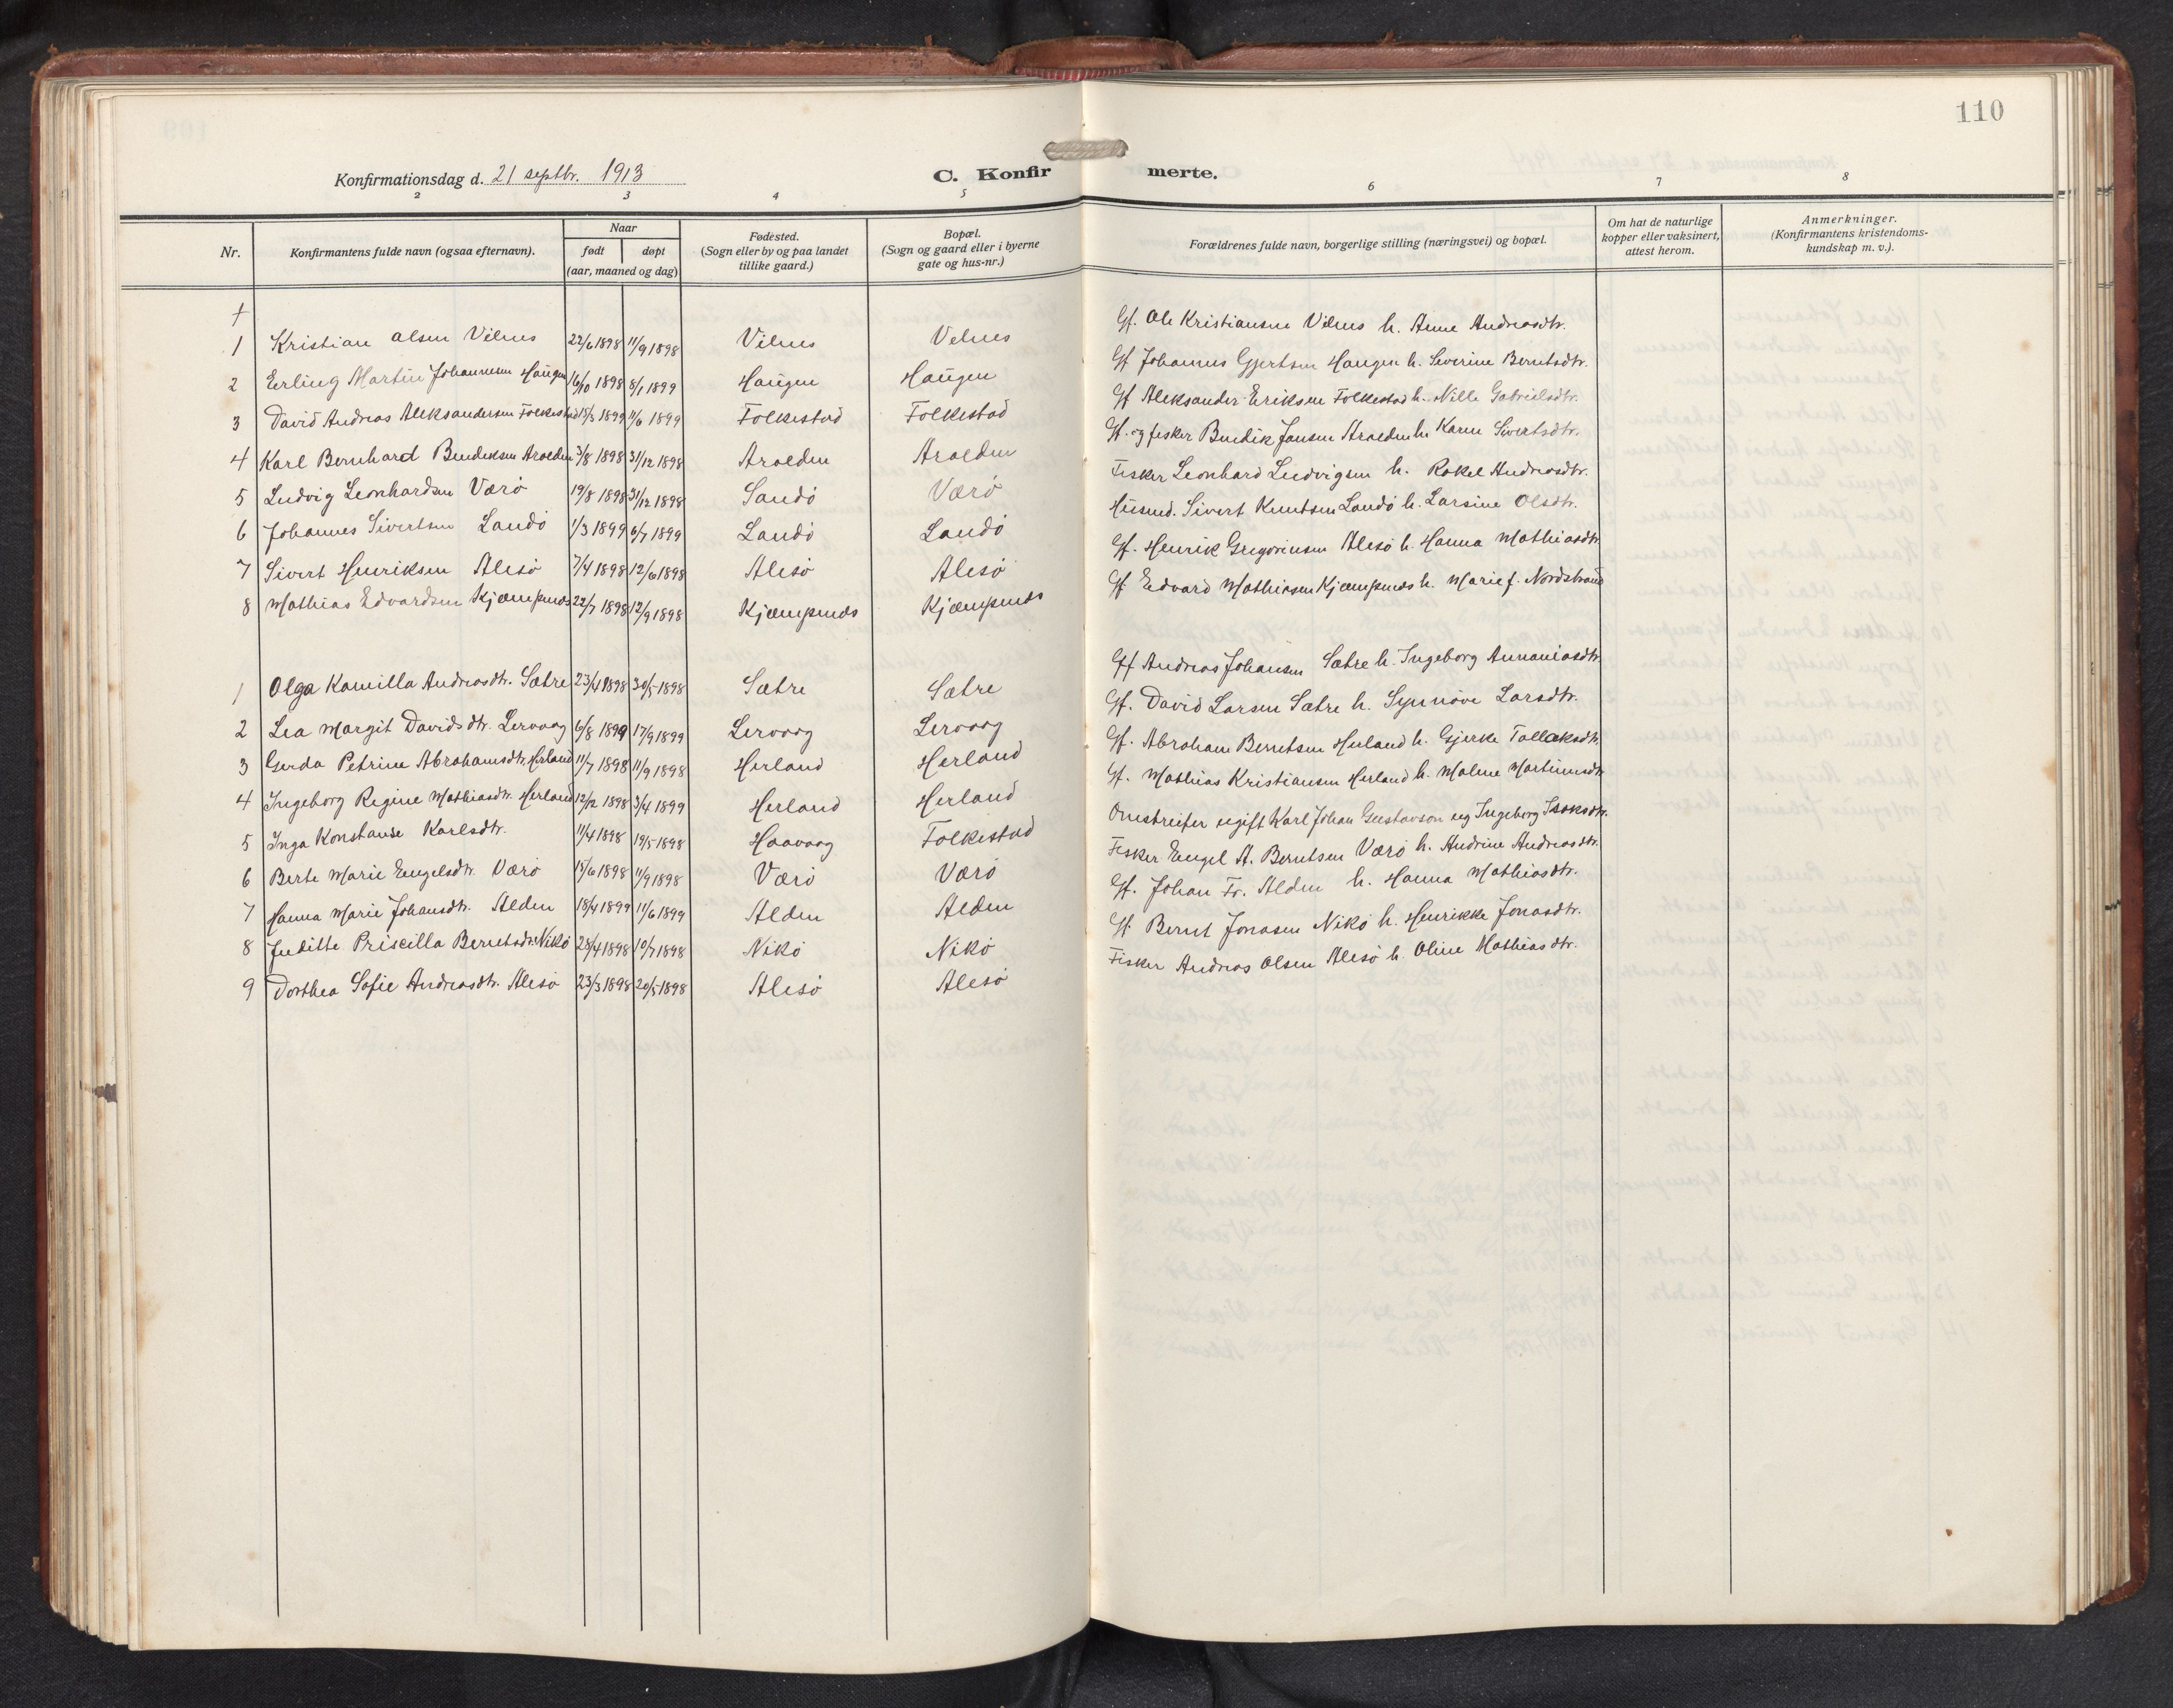 110
Konfirmationsdag d. 21 septbr. 1913
C. Konfirmerte.
2 3 4 5 6 7 8
Nr. Konfirmantens fulde navn (ogsaa efternavn). Naar født døpt (aar, maaned og dag) Fødested. (Sogn eller by og paa landet tillike gaard.) Bopæl. (Sogn og gaard eller i byerne gate og hus-nr.) Forældrenes fulde navn, borgerlige stilling (næringsvei) og bopæl. Om hat de naturlige kopper eller vaksinert, attest herom. Anmerkninger. (Konfirmantens kristendomskundskap m. v.).
1 Kristian Olsen Vilnes 22/6 1898 11/9 1898 Vilnes Velnes Gf. Ole Kristiansen Vilnes h. Anne Andreasdtr.
2 Erling Martin Johannesen Haugen 16/10 1898 8/1 1899 Haugen Haugen Gf Johannes Gjertsen Haugen h. Severine Berntsdtr.
3 David Andreas Aleksandersen Folkestad 15/3 1899 11/6 1899 Folkestad Folkestad Gf Aleksander Eriksen Folkestad h. Nille Gabrielsdtr.
4 Karl Bernhard Bendiksen Araeden 3/8 1898 31/12 1898 Araeden Araeden Gf. og fisker Bendik Jansen Araeden h. Karen Sivertsdtr.
5 Ludvig Leonhardsen Værö 19/8 1898 31/12 1898 Sandö Værö Fisker Leonhard Ludvigsen h. Rakel Andreasdtr.
6 Johannes Sivertsen Landö 1/3 1899 6/7 1899 Landö Landö Husmd. Sivert Knutsen Landö h. Larsine Olsdtr.
7 Sivert Henriksen Alesö 7/4 1898 12/6 1898 Alesö Alesö Gf. Henrik Gregoriusen Alesö h. Hanna Mathiasdtr.
8 Mathias Edvardsen Kjempenes 22/7 1898 12/9 1898 Kjæmpenes Kjæmpenes Gf Edvard Mathiasen Kjæmpenes h. Marie f. Nordstrand
1 Olga Kamilla Andreasdtr. Sætre 23/4 1898 30/5 1898 Sætre Sætre Gf Andreas Johansen Sætre h. Ingeborg Annaniasdtr.
2 Lea Margit Davidsdtr. Lervaag 6/8 1899 17/9 1899 Lervaag Lervaag Gf. David Larsen Sætre h. Synnöve Larsdtr.
3 Gerda Petrine Abrahamsdtr. Herland 11/7 1898 11/9 1898 Herland Herland Gf. Abraham Berntsen Herland h. Gjerke Tollaksdtr.
4 Ingeborg Regine Mathiasdtr. Herland 12/12 1898 3/4 1899 Herland Herland Gf. Mathias Kristiansen Herland h. Malene Martinusdtr.
5 Inga Konstanse Karlsdtr. 11/4 1898 19/5 1898 Haavaag Folkestad Omstreifer ugift Karl Johan Gustavson ug Ingeborg Isaksdtr.
6 Berte Marie Engelsdtr. Værö 15/6 1898 11/9 1898 Værö Værö Fisker Engel A. Berntsen Værö h. Andrine Andreasdtr.
7 Hanna Marie Johansdtr. Alden 18/4 1899 11/6 1899 Alden Alden Gf. Johan Fr. Alden h. Hanna Mathiasdtr.
8 Juditte Priscilla Berntsdtr. Nikö 28/4 1898 10/7 1898 Nikö Nikö Gf. Bernt Jonasen Nikö h. Henrikke Jonasdtr.
9 Dorthea Sofie Andreasdtr. Alesö 23/3 1898 20/5 1898 Alesö Alesö Fisker Andreas Olsen Alesö h. Oline Mathiasdtr.